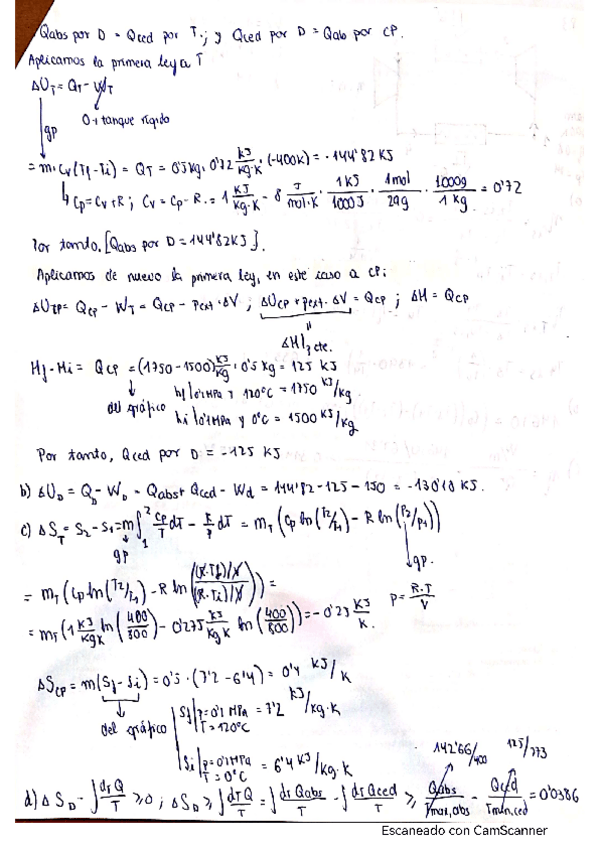 Qabs por D = Qced por T.; y Qced por D = Qab por CP.
Aplicamos la primera ley a T
ΔU_T = Q_T - W_T
gp
0; tanque rígido
= m·Cv(Tf-Ti) = Q_T = 0'5kg·0'72 kJ/kg·K·(-400K) = -144'82 KJ
Cp=Cv+R; Cv = Cp-R. = 1 KJ/kg·K - 8 J/mol·K · 1KJ/1000J · 1mol/29g · 1000g/1kg = 0'72
Por tanto. [Qabs por D = 144'82KJ].
Aplicamos de nuevo la primera ley, en este caso a CP:
= Q_CP - W_T = Q_CP - Pext·ΔV ; ΔU_CP + pext·ΔV = Q_CP ; ΔH = Q_CP
ΔH| cte.
Hf-Hi = Q_CP = (1750-1500) KJ/kg · 0'5 Kg = 125 KJ
del gráfico
hf|0'1MPa y 120°C = 1750 KJ/kg
hi|0'1MPa y 0°C = 1500 KJ/kg
Por tanto, Qced por D = -125 KJ
b) ΔU_D = Q_D - W_D = Qabs + Qced - Wd = 144'82-125-150 = -130'18 KJ.
c) ΔS_T = S2-S1 = m∫₁² Cp/T dT - R/P dT = m_T (Cp ln(T2/T1) - R ln(P2/P1))
gp
gp.
= m_T (Cp ln(T2/T1) - R ln((R·Tf)/V/(R·Ti)/V)) =
P = R·T/V
= m_T (1 KJ/kg K ln(400/800) - 0'275 KJ/kg K ln(400/800)) = -0'25 KJ/K.
ΔS_CP = m(Sf-Si) = 0'5·(7'2-6'4) = 0'4 KJ/K
del gráfico
Sf|P=0'1 MPa T=120°C = 7'2 KJ/kg·K
Si|P=0'1MPa T=0°C = 6'4 KJ/kg·K
142'66/400
125/273
d) ΔS_D - ∫ Q/T ≥ 0 ; ΔS_D ≥ ∫ Q/T = ∫ Qabs/T - ∫ Qced/T ≥ Qabs/Tmax,abs - Qced/Tmin,ced = 0'0386
Escaneado con CamScanner